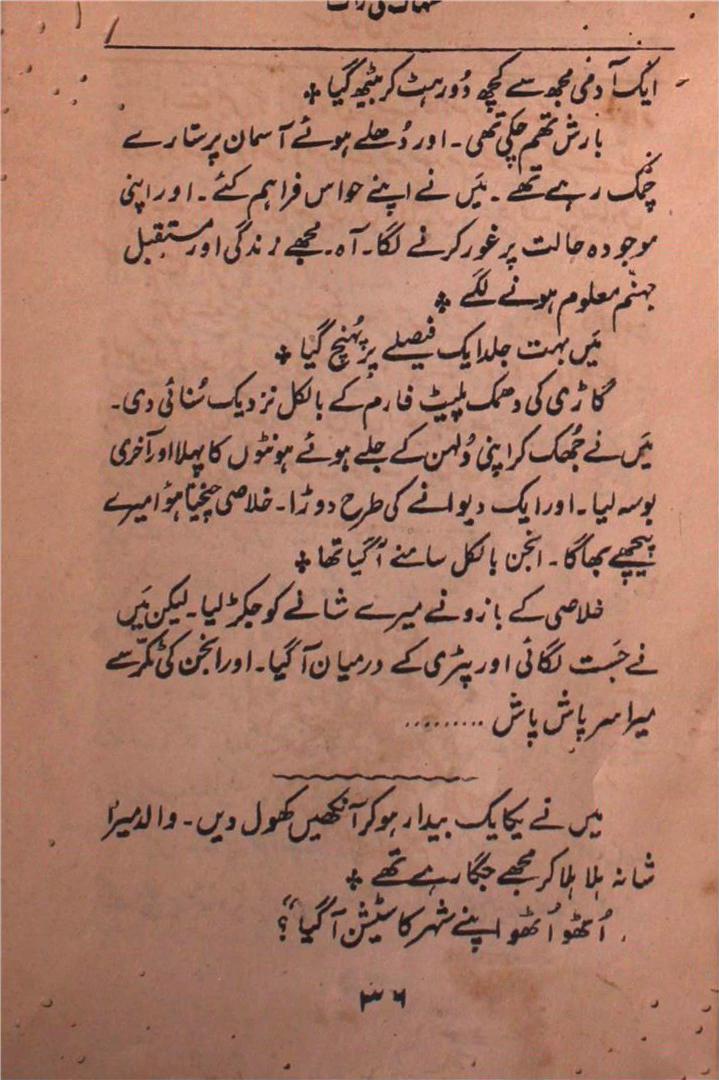 سہاگ کی رات
ایک آدمی مجھ سے کچھ دُور ہٹ کر بیٹھ گیا ٭
بارش تھم چکی تھی ۔ اور دُھلے ہوئے آسمان پر ستارے
چمک رہے تھے ۔ مَیں نے اپنے حواس فراہم کئے ۔ اور اپنی
موجودہ حالت پر غور کرنے لگا ۔ آہ ۔ مُجھے زندگی اور مستقبل
جہنّم معلوم ہونے لگے ٭
مَیں بہت جلد ایک فیصلے پر پہُنچ گیا ٭
گاڑی کی دھمک پلیٹ فارم کے بالکل نزدیک سُنائی دی ۔
مَیں نے جُھک کر اپنی دُلہن کے جلے ہوئے ہونٹوں کا پہلا اور آخری
بوسہ لیا ۔ اور ایک دیوانے کی طرح دوڑا ۔ خلاصی چیختا ہؤا میرے
پیچھے بھاگا ۔ انجن بالکل سامنے آگیا تھا ٭
خلاصی کے بازو نے میرے شانے کو جکڑ لیا ۔ لیکن مَیں
نے جَست لگائی اور پٹری کے درمیان آ گیا ۔ اور انجن کی ٹکّر سے
میرا سر پاش پاش .........
میں نے یکایک بیدار ہو کر آنکھیں کھول دیں ۔ والد میرا
شانہ ہلا ہلا کر مجھے جگا رہے تھے ٭
اُٹھو اُٹھو اپنے شہر کا سٹیشن آ گیا “ ؟
۳۶